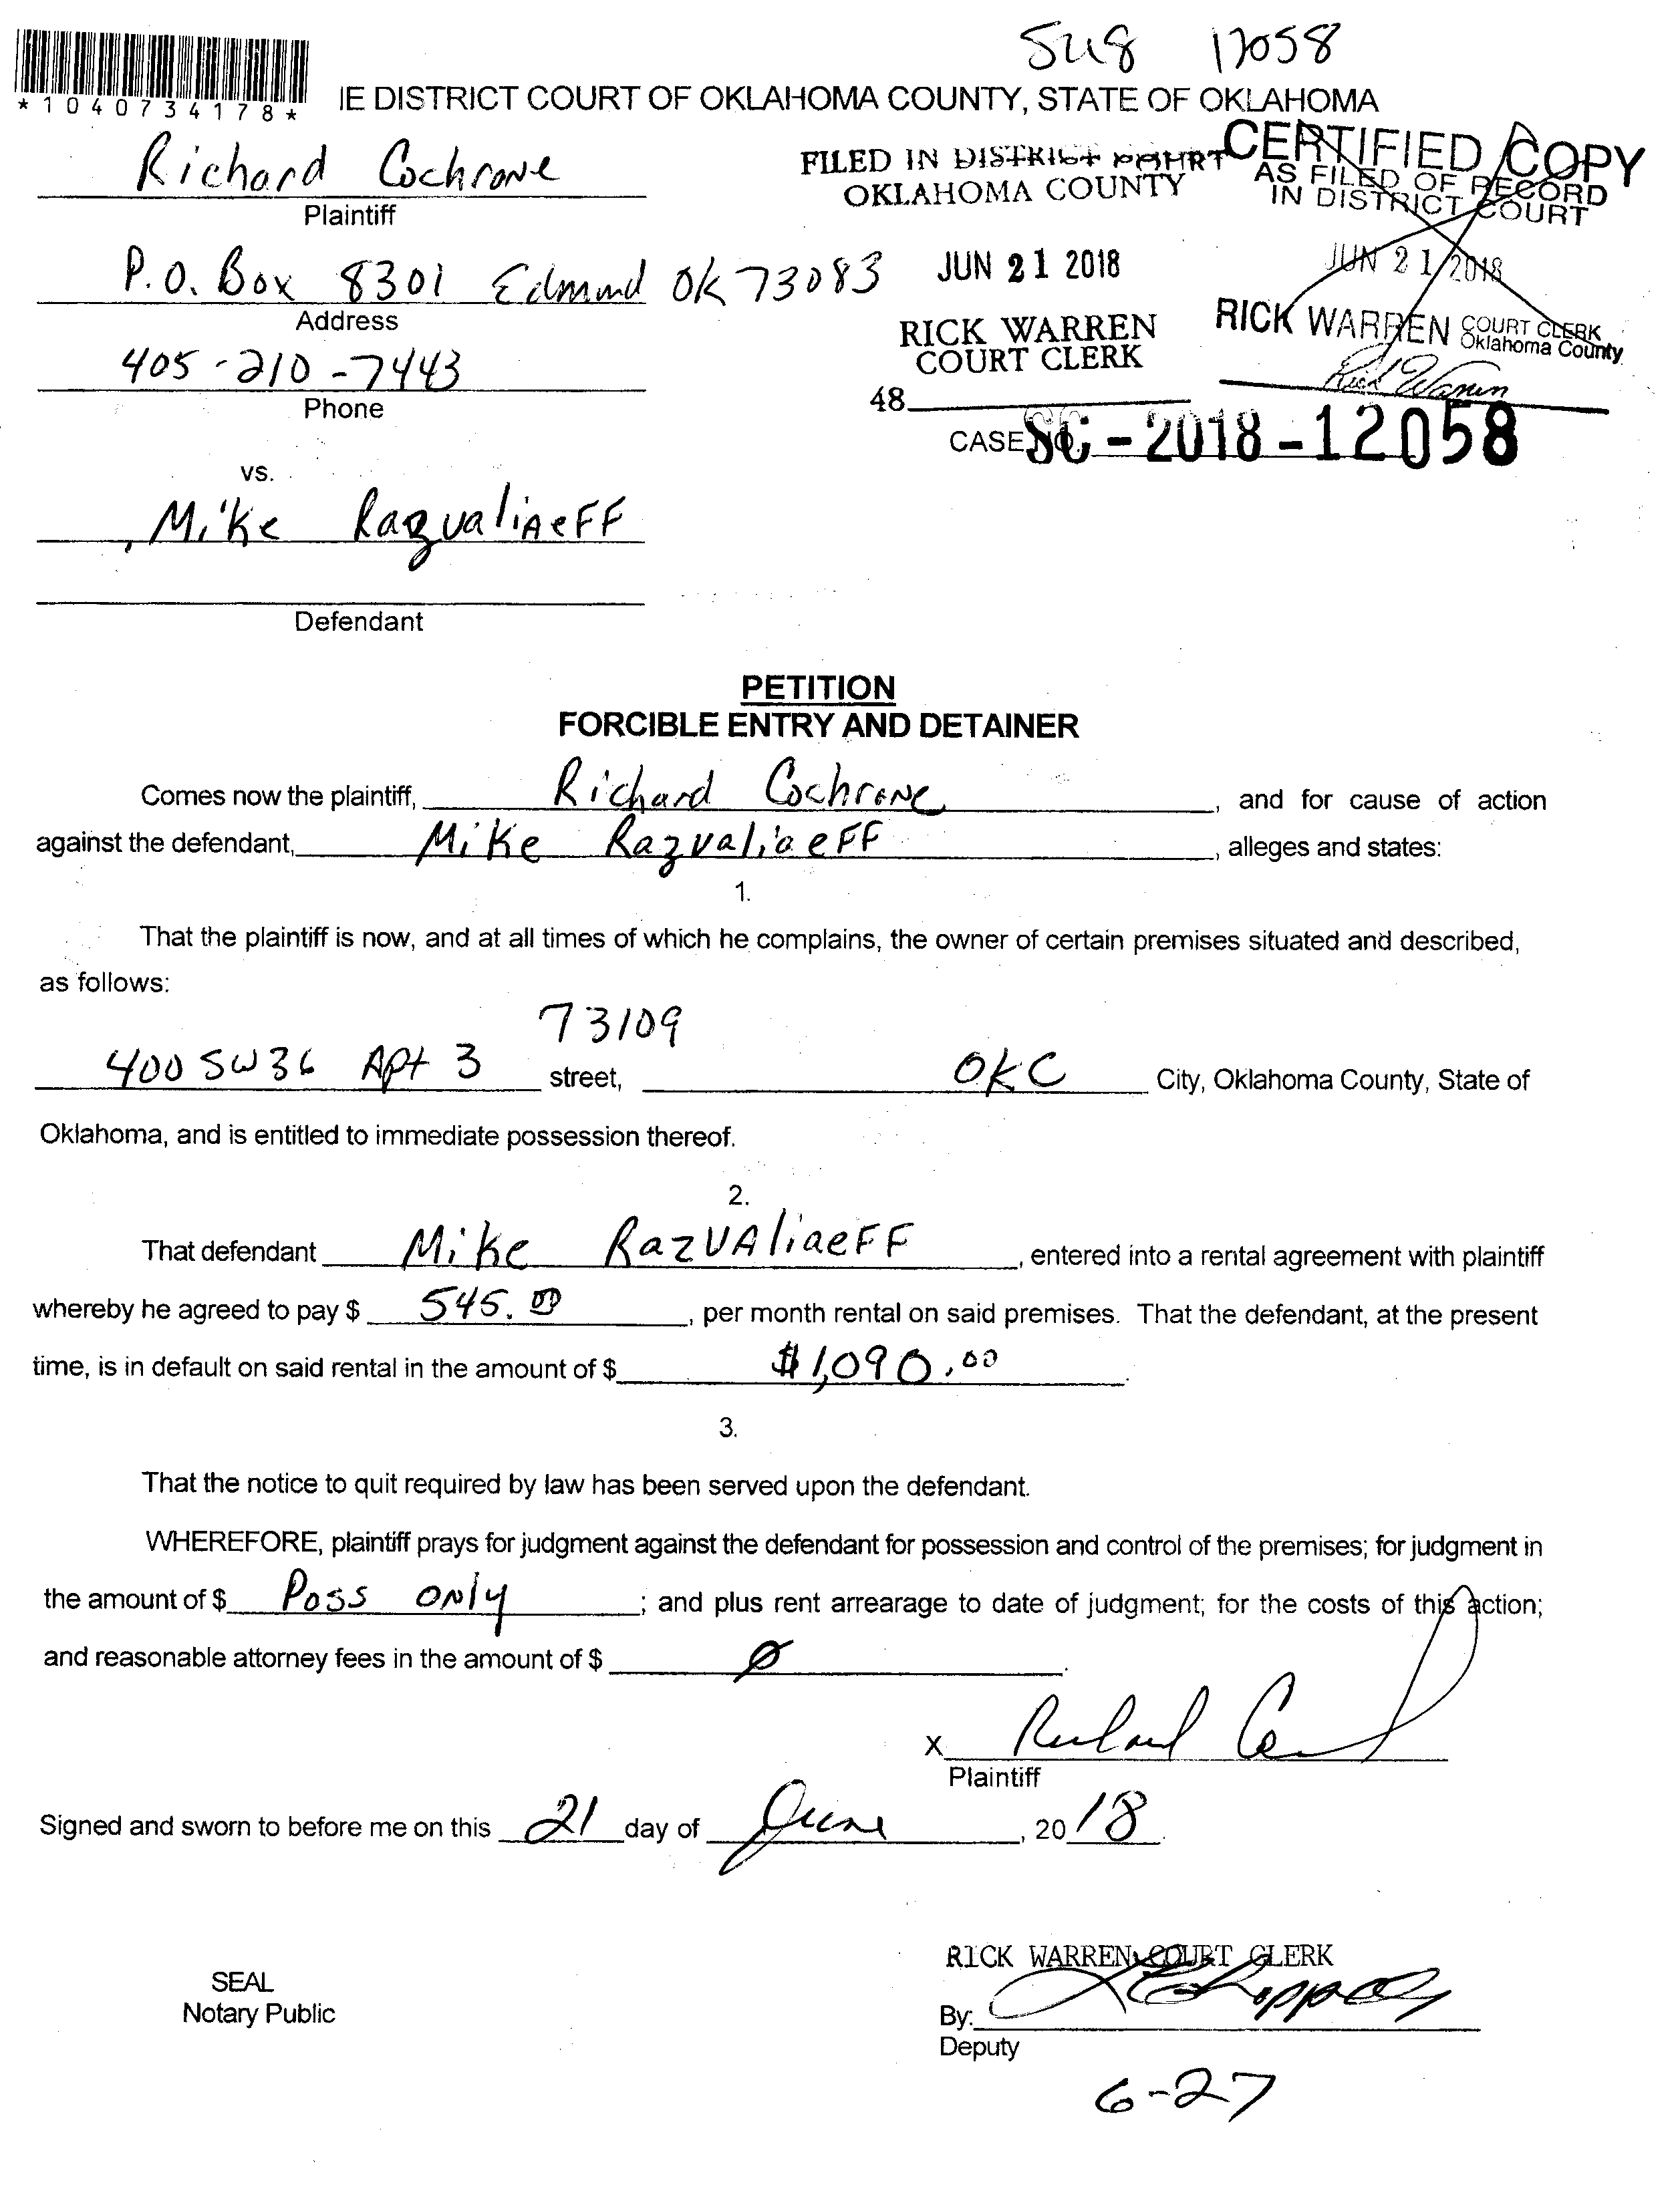 SC18 12058
*1040734178*
IE DISTRICT COURT OF OKLAHOMA COUNTY, STATE OF OKLAHOMA
Richard Cochrane
Plaintiff
FILED IN DISTRICT COURT
OKLAHOMA COUNTY
CERTIFIED COPY
AS FILED OF RECORD
IN DISTRICT COURT
P.O. Box 8301 Edmond OK 73083
Address
JUN 21 2018
JUN 21 2018
405-210-7443
Phone
RICK WARREN
COURT CLERK
48
RICK WARREN COURT CLERK
Oklahoma County
Rick Warren
CASE NO. SC-2018-12058
vs.
Mike RazvaliaeFF
Defendant
PETITION
FORCIBLE ENTRY AND DETAINER
Comes now the plaintiff, Richard Cochrane, and for cause of action
against the defendant, Mike RazvaliaeFF, alleges and states:
1.
That the plaintiff is now, and at all times of which he complains, the owner of certain premises situated and described,
as follows:
73109
400 SW 36 Apt 3 street, OKC City, Oklahoma County, State of
Oklahoma, and is entitled to immediate possession thereof.
2.
That defendant Mike RazVAliaeFF, entered into a rental agreement with plaintiff
whereby he agreed to pay $ 545.00, per month rental on said premises. That the defendant, at the present
time, is in default on said rental in the amount of $ $1,090.00.
3.
That the notice to quit required by law has been served upon the defendant.
WHEREFORE, plaintiff prays for judgment against the defendant for possession and control of the premises; for judgment in
the amount of $ Poss only; and plus rent arrearage to date of judgment; for the costs of this action;
and reasonable attorney fees in the amount of $ Ø.
X
Plaintiff
Signed and sworn to before me on this 21 day of June, 2018.
RICK WARREN, COURT CLERK
SEAL
Notary Public
By:
Deputy
6-27